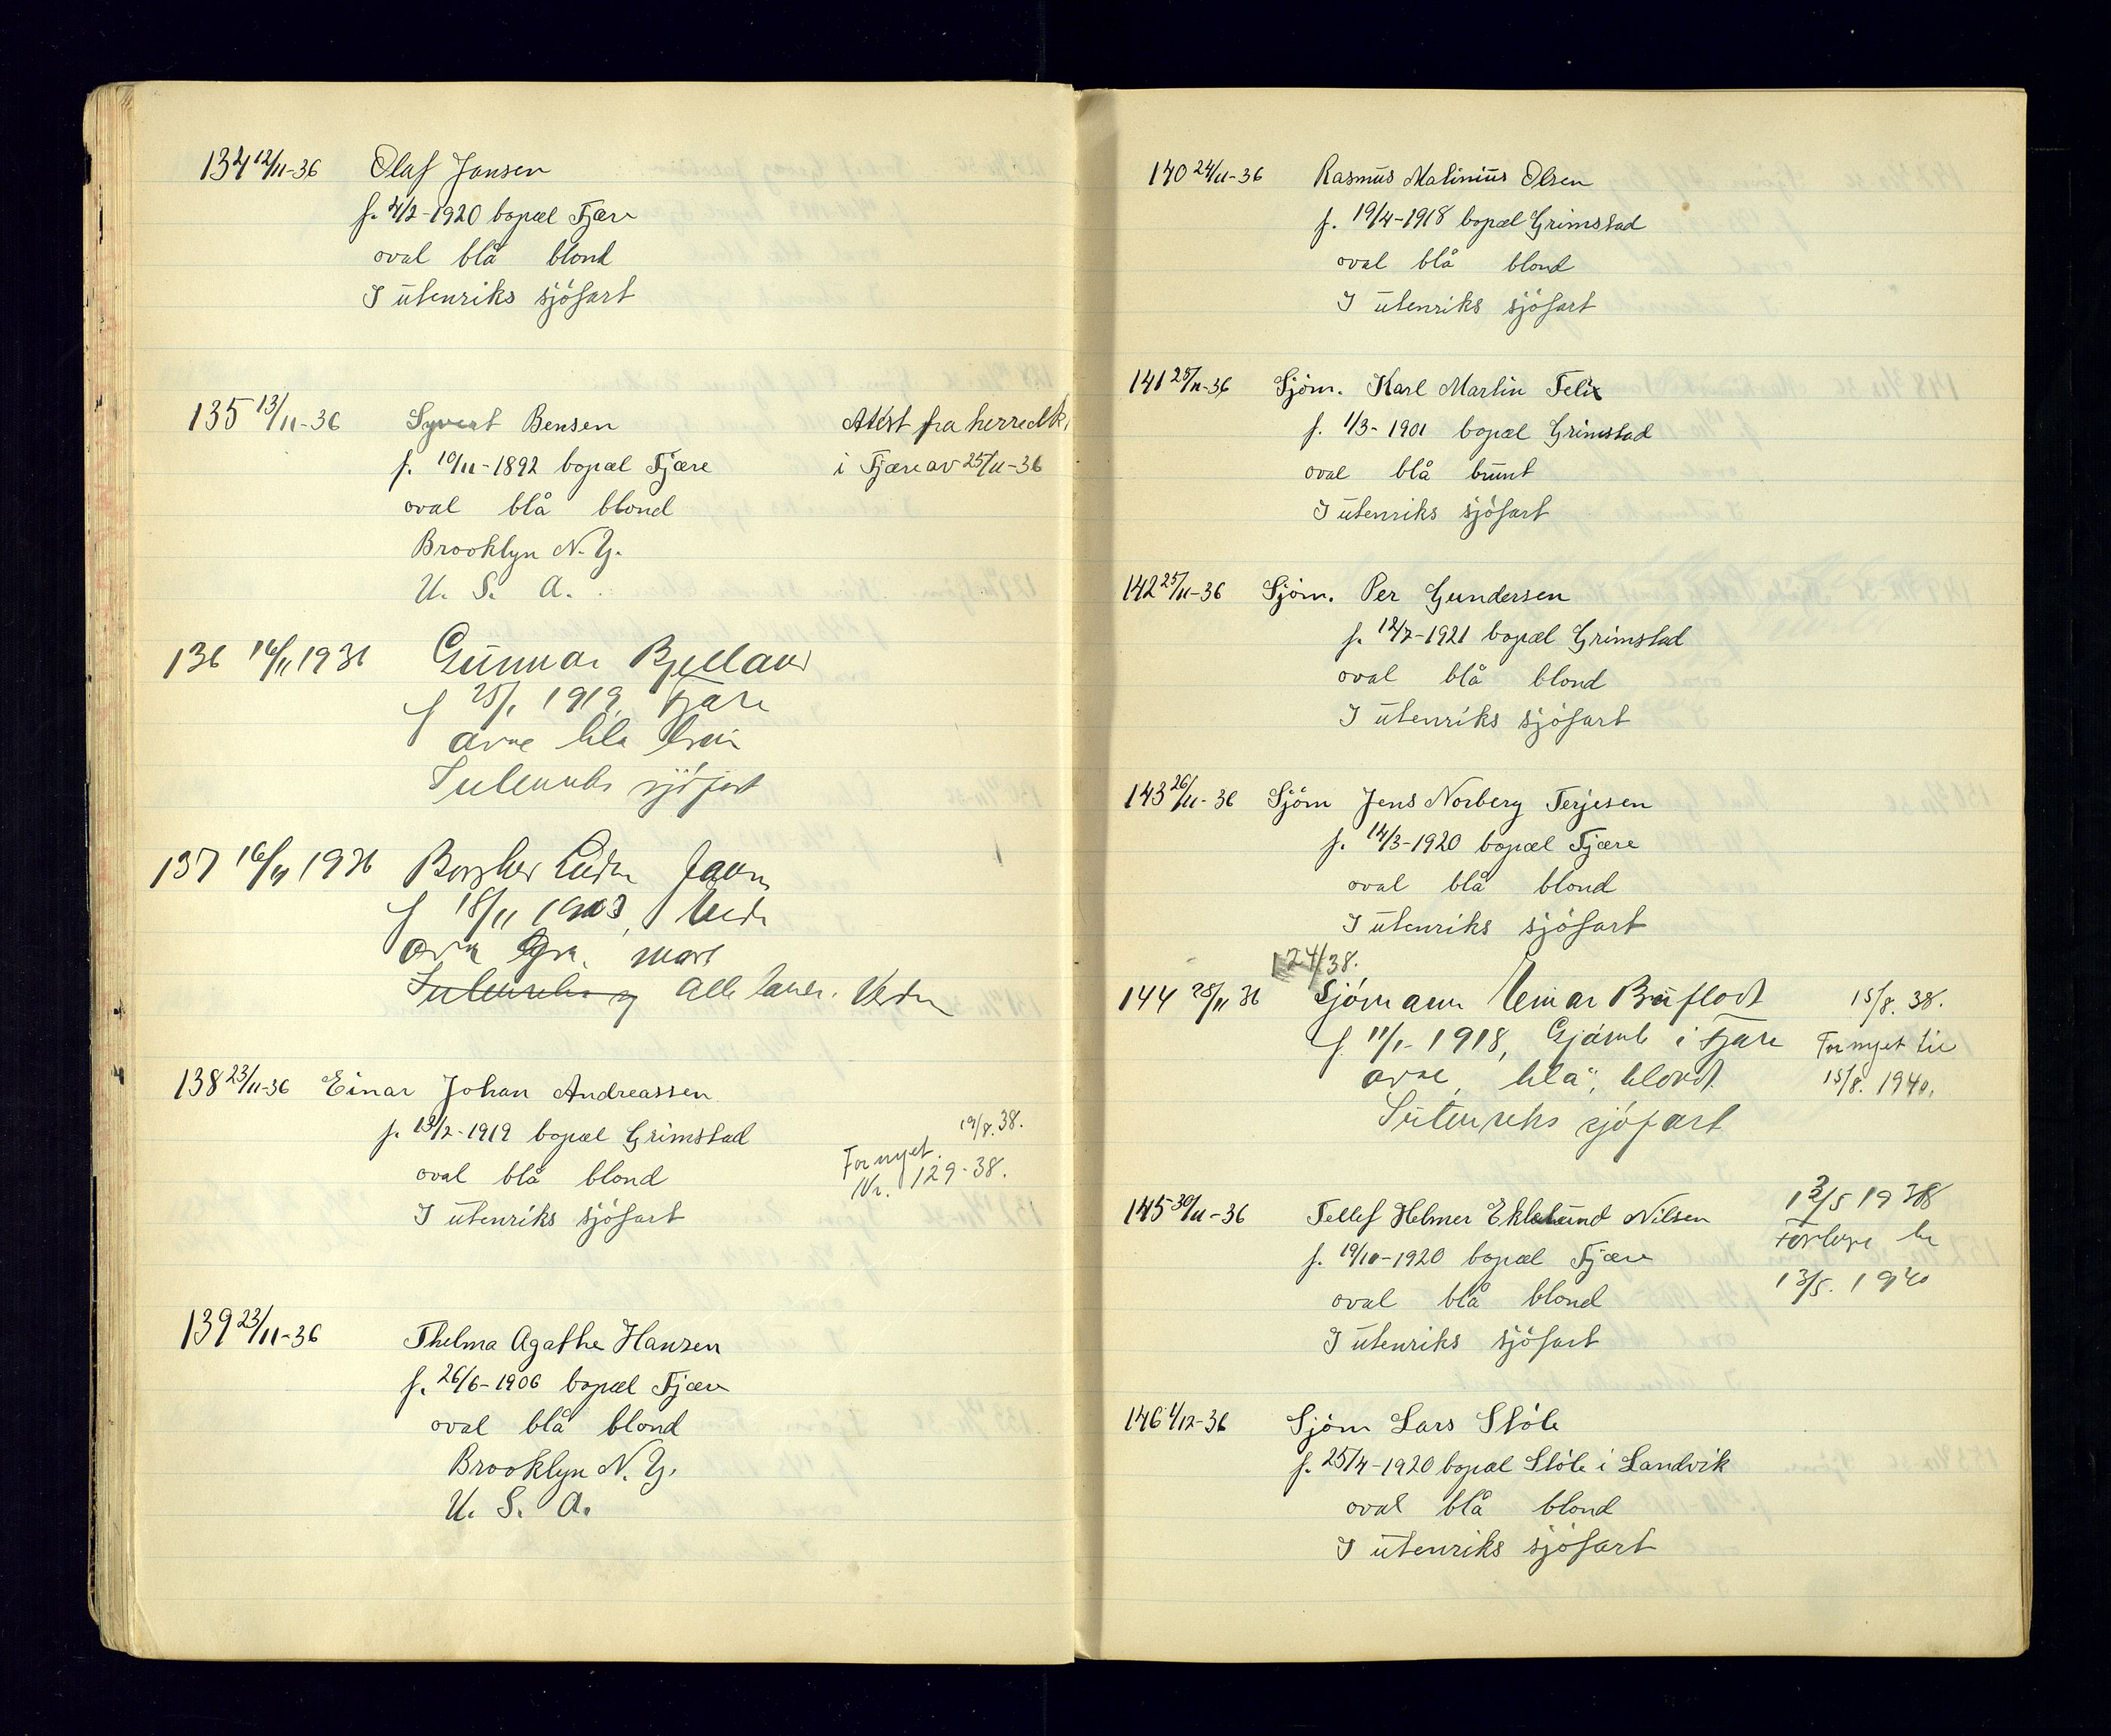 134 12/11-36 Olaf Jansen
f. 4/2-1920 bopæl Fjære
oval blå blond
I utenriks sjöfart
135 13/11-36 Syvert Bensen
f. 10/11-1892 bopæl Fjære
oval blå blond
Brooklyn N.Y.
U. S. A.
Attst fra herredtk.
i Fjære av 25/11-36
136 16/11 1936 Gunnar Bjelland
f 25/1 1919, Fjære
oval blå brun
I utenriks sjöfart
137 16/11 1936
f 18/11 1903,
oval Grå, mørk
I utenriks Alle land. Verden
138 23/11-36 Einar Johan Andreassen
f. 13/2-1919 bopæl Grimstad
oval blå blond
I utenriks sjöfart
19/8.38.
Fornyet.
Nr. 129-38.
139 23/11-36 Thelma Agathe Hansen
f. 26/6-1906 bopæl Fjære
oval blå blond
Brooklyn N.Y.
U. S. A.
140 24/11-36 Rasmus Malinius Olsen
f. 19/4-1918 bopæl Grimstad
oval blå blond
I utenriks sjöfart
141 25/11-36 Sjöm. Karl Martin Felix
f. 1/3-1901 bopæl Grimstad
oval blå brunt
I utenriks sjöfart
142 25/11-36 Sjöm. Per Gundersen
f. 12/7-1921 bopæl Grimstad
oval blå blond
I utenriks sjöfart
143 26/11-36 Sjöm Jens Norberg Terjesen
f. 14/3-1920 bopæl Fjære
oval blå blond
I utenriks sjöfart
124/38.
144 28/11 36 Sjömann Einar Buflodt
f. 11/1-1918, Gjömle i Fjære
oval, blå, blondt
I utenriks sjöfart
15/8.38.
Fornyet til
15/8.1940.
145 30/11-36 Tellef Helmer Eklund Nilsen
f. 19/10-1920 bopæl Fjære
oval blå blond
I utenriks sjöfart
13/5 1938
Forlenge
13/5. 1940
146 1/12-36 Sjöm Lars Stöle
f. 25/4-1920 bopæl Stöle i Landvik
oval blå blond
I utenriks sjöfart